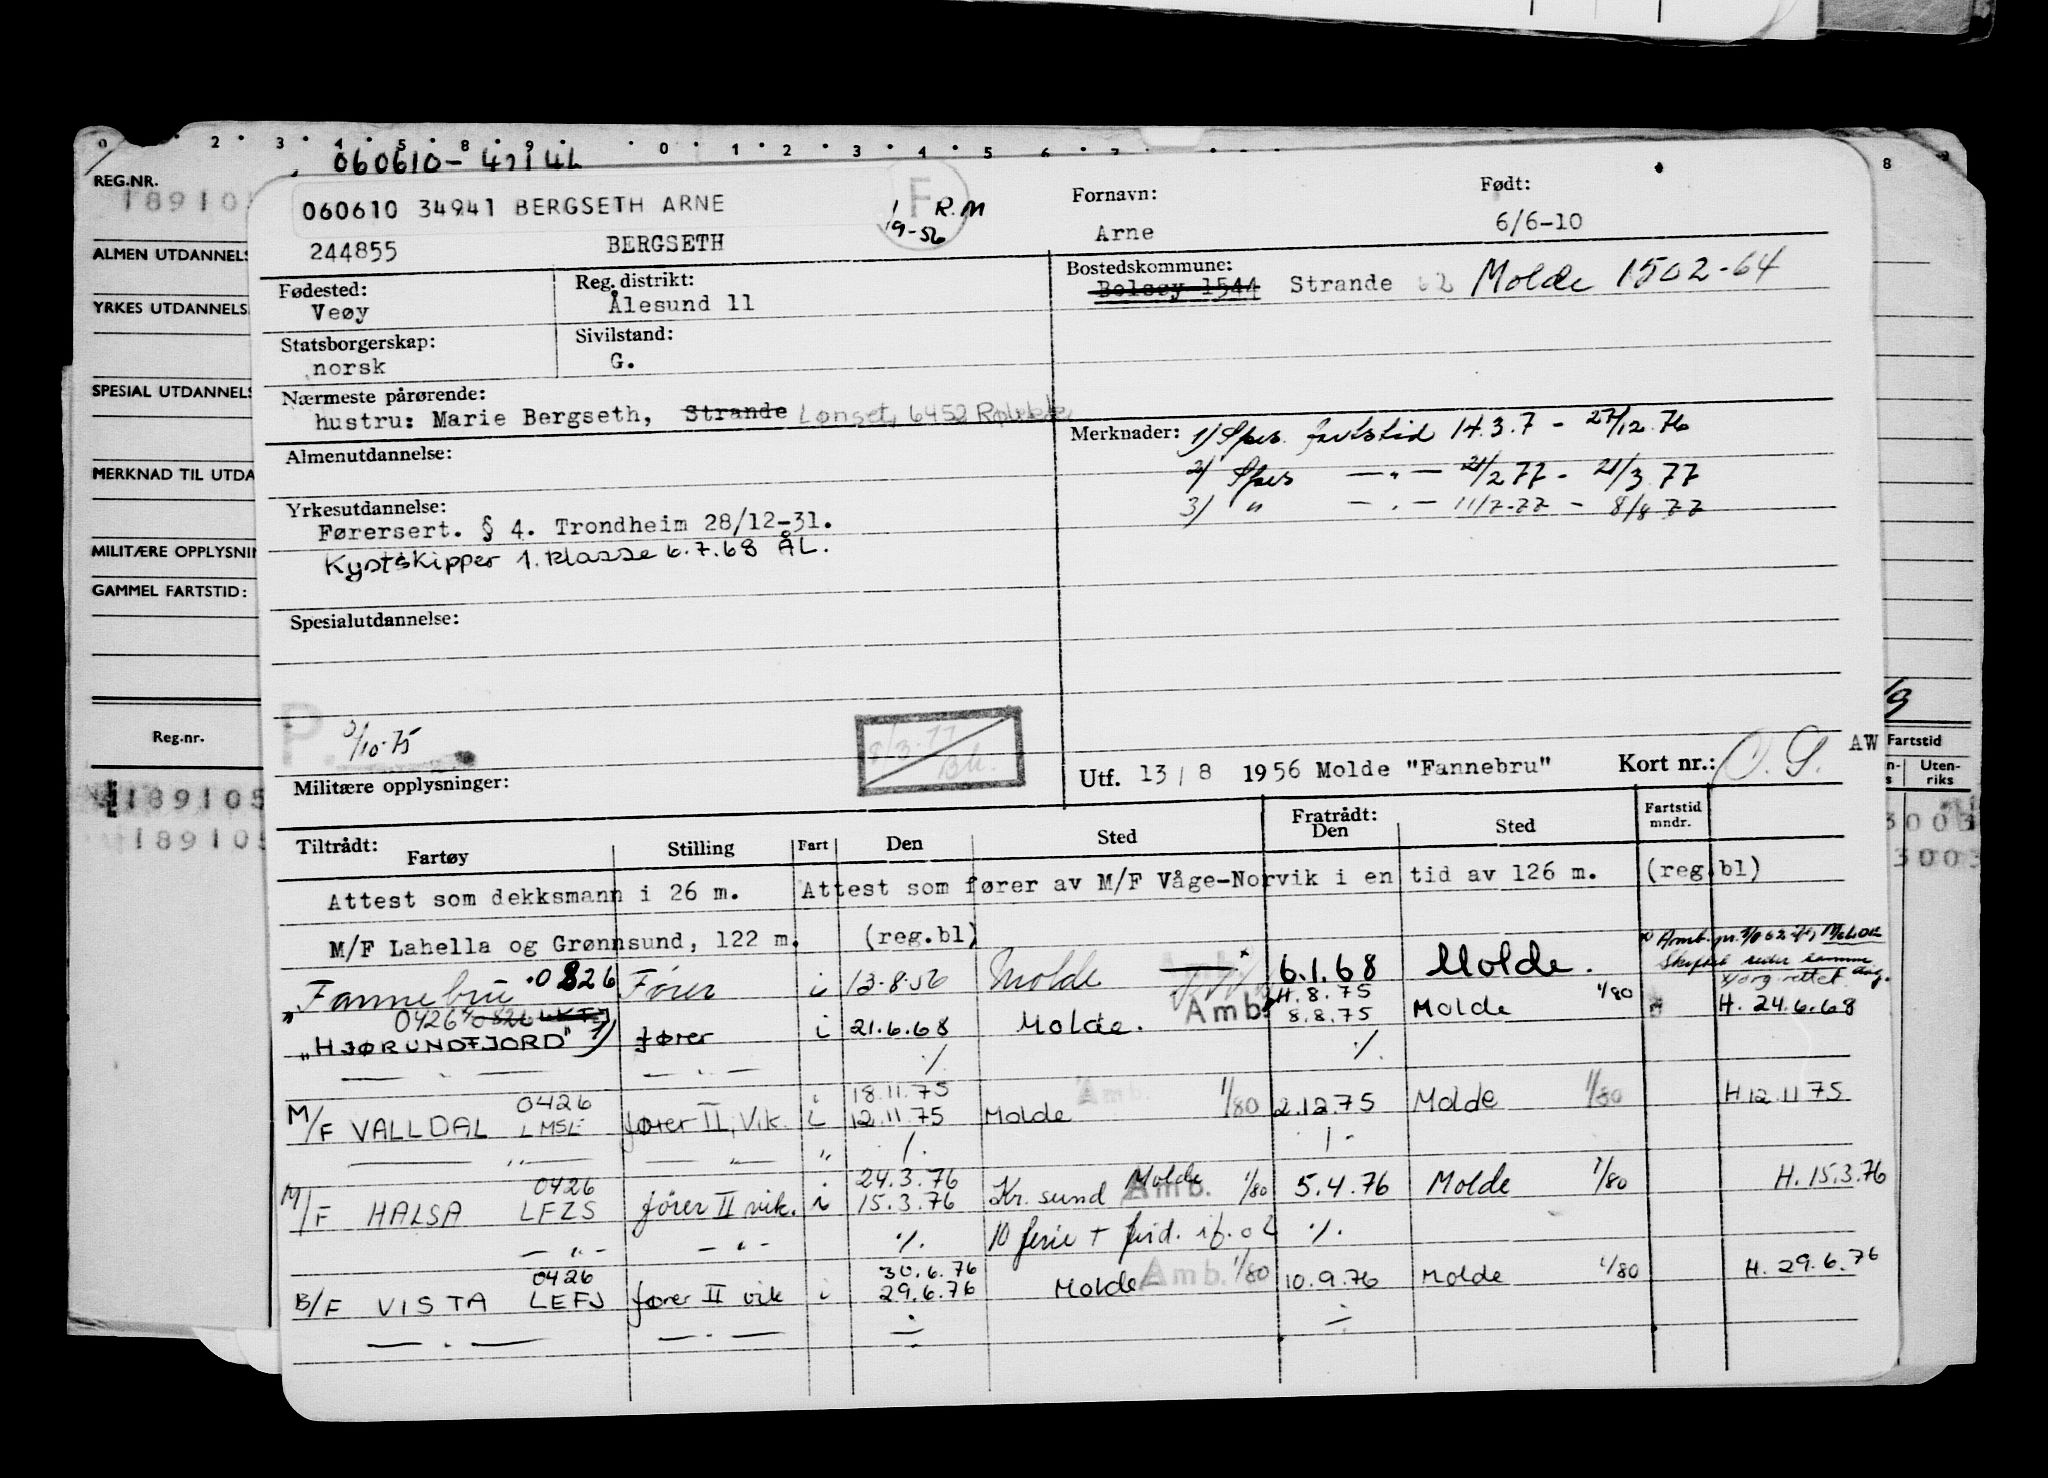 060610-
REG.NR.
189105
ALMEN UTDANNELS
YRKES UTDANNELS
SPESIAL UTDANNELS
MERKNAD TIL UTDA
MILITÆRE OPPLYSNIN
GAMMEL FARTSTID:
Reg.nr.
189105
189105
060610 34941 BERGSETH ARNE
F
1/9-56 R.M
Fornavn:
Født:
244855
BERGSETH
Arne
6/6-10
Fødested:
Veøy
Reg. distrikt:
Ålesund 11
Bostedskommune:
Bolsøy 1544 Strande 62 Molde 1502-64
Statsborgerskap:
norsk
Sivilstand:
G.
Nærmeste pårørende:
hustru: Marie Bergseth, Strande Lønset, 6452
Merknader: 1) Spes. fartstid 14.3.7 - 27/12.76
2) Spes — " — 21/2 77 - 21/3 77
3) " — " — 11/7-77 - 8/8 77
Almenutdannelse:
Yrkesutdannelse:
Førersert. § 4. Trondheim 28/12-31.
Kystskipper 1. klasse 6.7.68 ÅL.
Spesialutdannelse:
P.
/10-75
8/3-77
Militære opplysninger:
Utf. 13/8 1956 Molde "Fannebru"
Kort nr.: O. G.
AW
Fartstid
Uten-
riks
Tiltrådt:
Fartøy
Stilling
Fart
Den
Sted
Fratrådt:
Den
Sted
Fartstid
mndr.
Attest som dekksmann i 26 m. Attest som fører av M/F Våge-Norvik i en tid av 126 m. (reg.bl)
M/F Lahella og Grønnsund, 122 m. (reg.bl)
"Fannebru 0826 Fører i 13-8-56 Molde 6.1.68 Molde.
0426
"HJØRUNDFJORD" 1) fører i 21.6.68 Molde. Amb. H.8.75 8.8.75 Molde 1/80 H. 24.6.68
— " — — " — % %
M/F VALLDAL 0426 LMSL fører II, Vik. i 18.11.75 12.11.75 Molde Amb. 1/80 2.12.75 Molde 1/80 H.12.11 75
— " — — " — " % %
M/F HALSA 0426 LFZS fører II vik. i 24.3.76 15.3.76 Kr. sund Molde Amb. 1/80 5.4.76 Molde 1/80 H. 15.3.76
— " — — " — % %
B/F VISTA 0426 LEFJ fører II vik i 30.6.76 29.6.76 Molde Amb. 1/80 10.9.76 Molde 1/80 H. 29.6.76
— " — — " — ÷ ÷